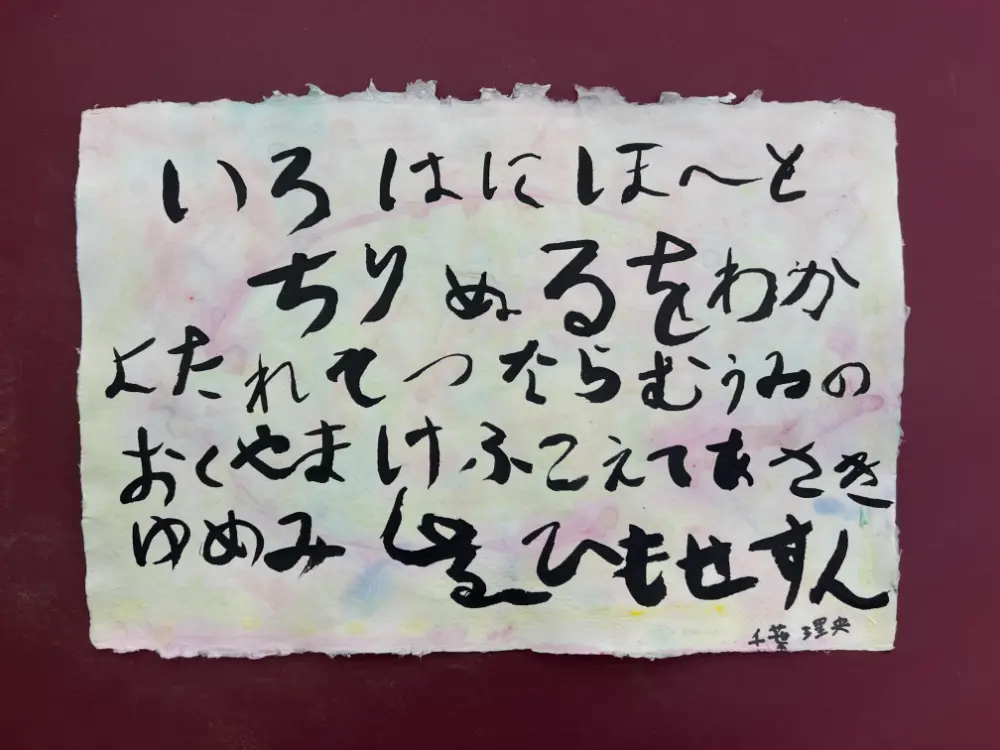 いろはにほへと
ちりぬるをわか
よたれそつねらむうゐの
おくやまけふこえてあさき
ゆめみしゑひもせすん
千葉理央